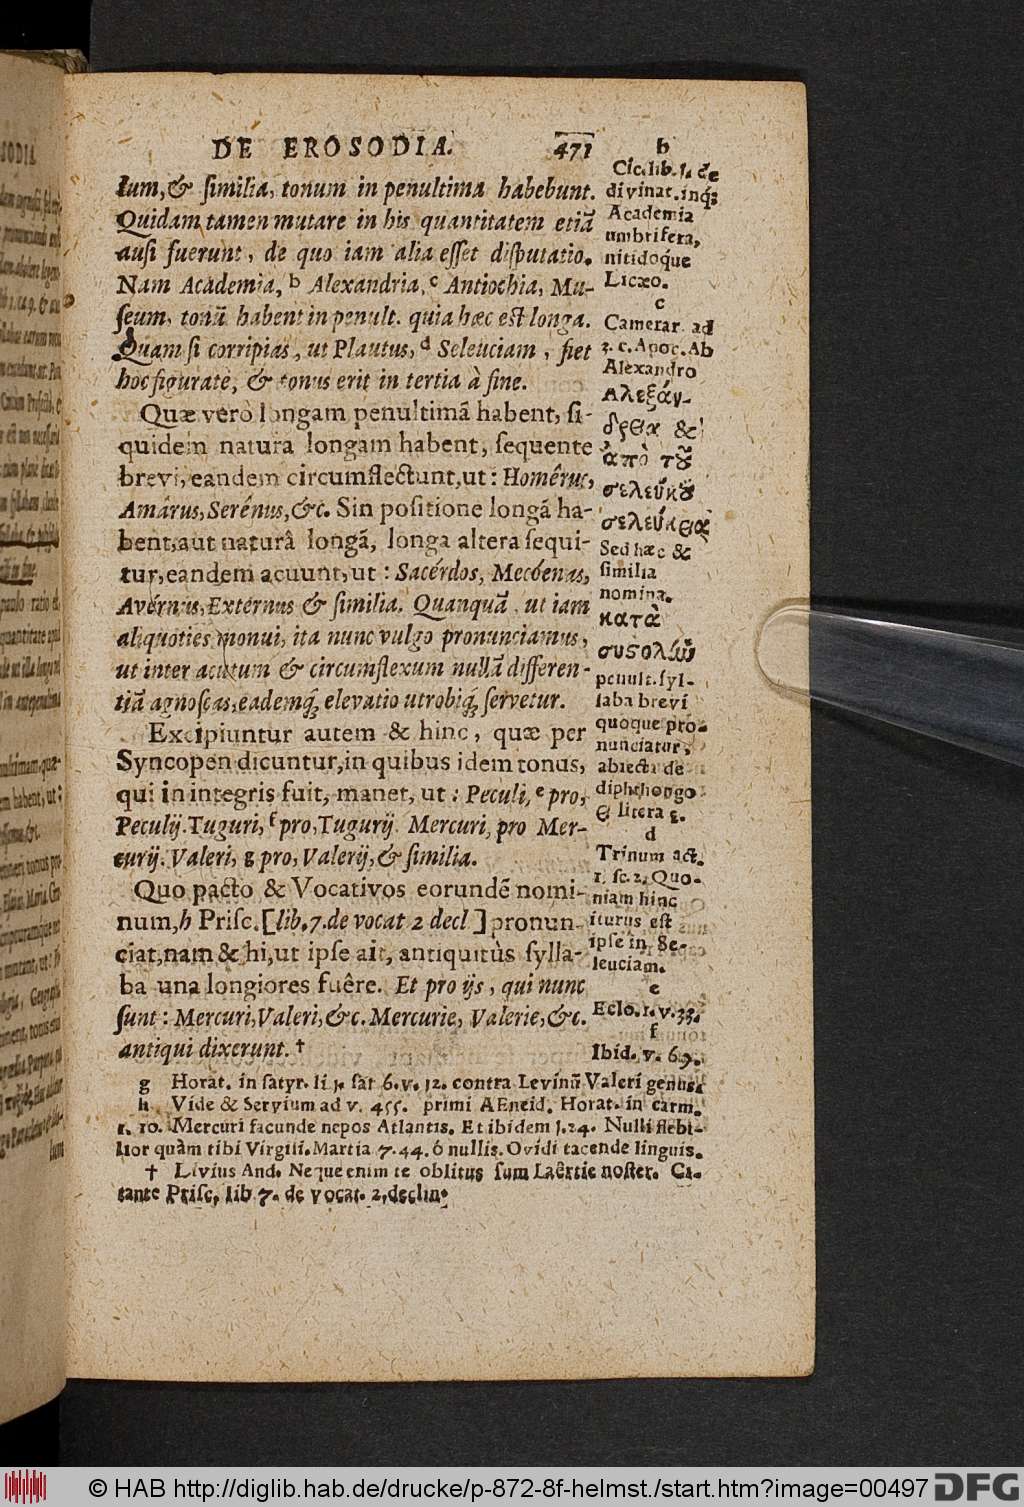 DE EROSODIA. 471
lum, & similia, tonum in penultima habebunt.
Quidam tamen mutare in his quantitatem etiã
ausi fuerunt, de quo iam alia esset disputatio.
Nam Academia, b Alexandria, c Antiochia, Mu-
seum, tonũ habent in penult. quia hæc est longa.
Quam si corripias, ut Plautus, d Seleuciam, fiet
hoc figuratè, & tonus erit in tertia à fine.
Quæ verò longam penultimã habent, si-
quidem natura longam habent, sequente
brevi, eandem circumflectunt, ut: Homêrus,
Amârus, Serênus, &c. Sin positione longã ha-
bent, aut naturâ longã, longa altera sequi-
tur, eandem acuunt, ut: Sacérdos, Mecóenas,
Avérnus, Extérnus & similia. Quanquã, ut iam
aliquoties monui, ita nunc vulgo pronunciamus,
ut inter acutum & circumflexum nullã differen-
tiã agnoscas, eademq́; elevatio utrobiq́; servetur.
Excipiuntur autem & hinc, quæ per
Syncopen dicuntur, in quibus idem tonus,
qui in integris fuit, manet, ut: Peculi, e pro,
Peculij. Tuguri, f pro, Tugurij. Mercuri, pro Mer-
curij. Valeri, g pro, Valerij, & similia.
Quo pacto & Vocativos eorundẽ nomi-
num, h Prisc. [lib. 7. de vocat 2 decl] pronun-
ciat, nam & hi, ut ipse ait, antiquitùs sylla-
ba una longiores fuêre. Et pro ijs, qui nunc
sunt: Mercuri, Valeri, &c. Mercurie, Valerie, &c.
antiqui dixerunt. †
b
Cic. lib. 1. de
divinat. inq;
Academia
umbrifera,
nitidoque
Licæo.
c
Camerar. ad
3. c. Apoc. Ab
Alexandro
Αλεξάν-
δρεια &
ἀπὸ τοῦ
σελεύκου
σελεύκεια
Sed hæc &
similia
nomina.
κατὰ
συστολὼ
penult. syl-
laba brevi
quoque pro-
nunciatur,
abiecta de
diphthongo
& litera ε.
d
Trinum act.
1. sc. 2. Quo-
niam hinc
iturus est
ipse in Se-
leuciam.
e
Eclo. 1. v. 33.
f
Ibid. v. 69.
g Horat. in satyr. li 1. sat 6. v. 12. contra Levinũ Valeri genus.
h Vide & Servium ad v. 455. primi AEneid. Horat. in carm.
1. 10. Mercuri facunde nepos Atlantis. Et ibidem 1. 24. Nulli flebi-
lior quàm tibi Virgili. Martia 7. 44. ô nullis. Ovidi tacende linguis.
† Livius And. Neque enim te oblitus sum Laêrtie noster. Ci-
tante Prisc. lib 7. de vocat. 2. declin.
© HAB http://diglib.hab.de/drucke/p-872-8f-helmst./start.htm?image=00497 DFG